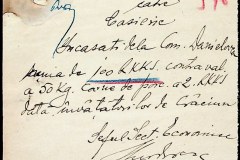 către
Casierie
Încasați dela Com. Danielova
suma de 100 RKKS, contraval.
a 50 kg. Carne de porc a 2. RKKS
dată învățătorilor de Crăciun
Șeful Sect Economice